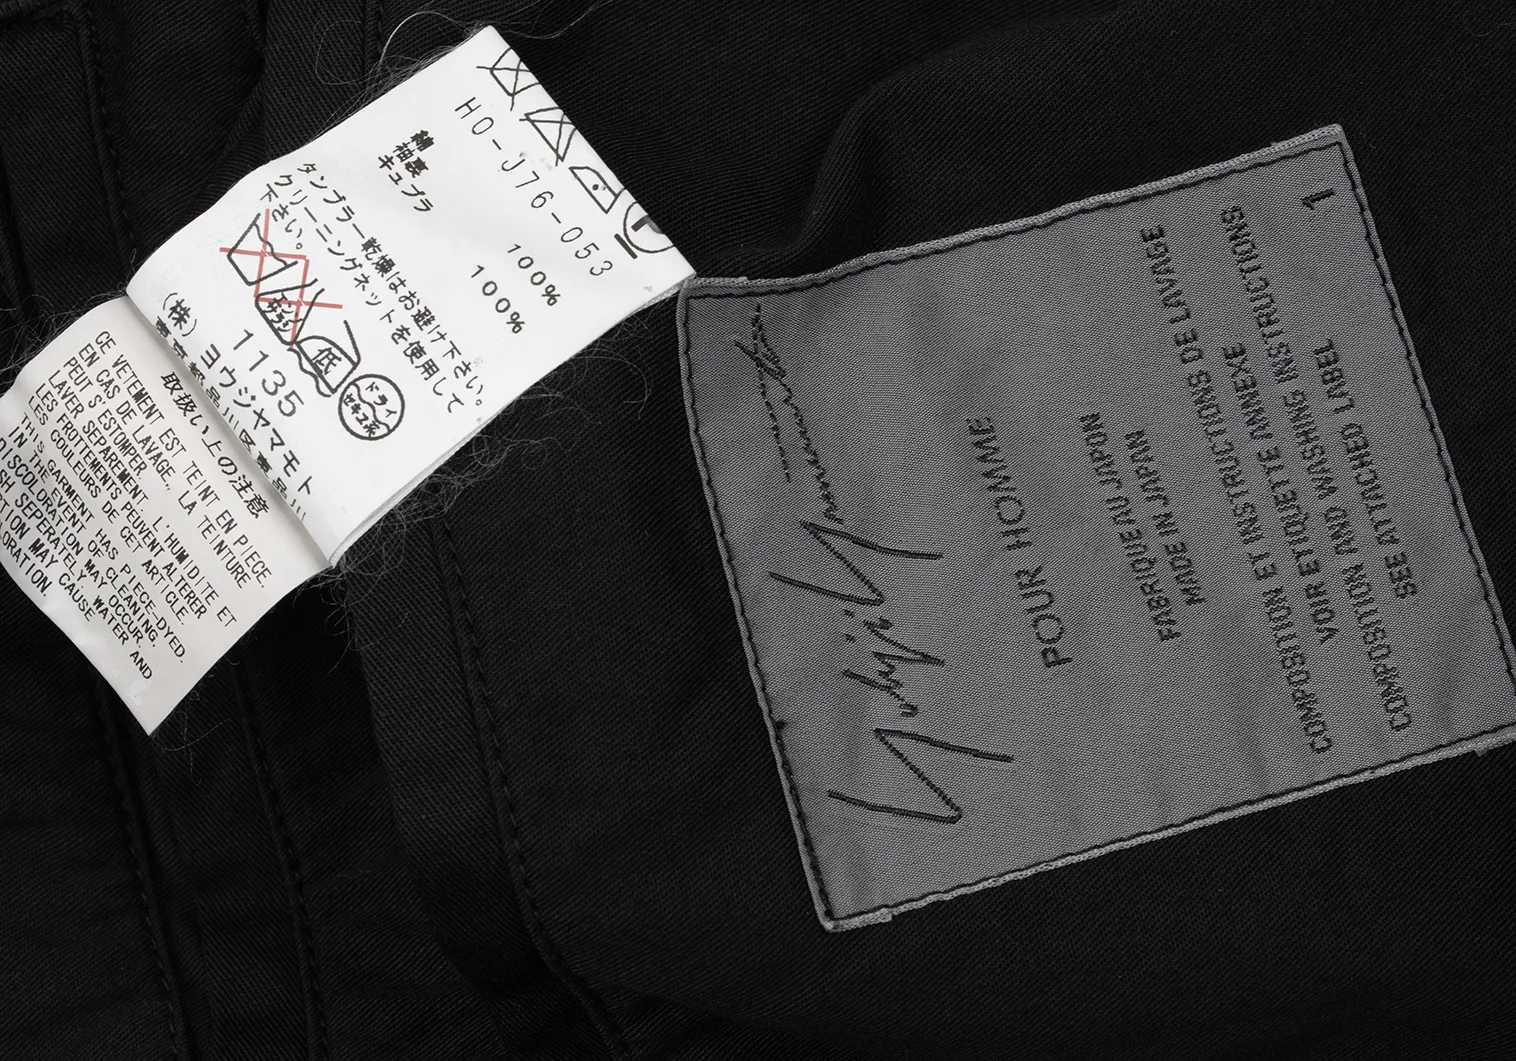 HO-J76-053
綿 100%
袖裏
キュプラ 100%
タンブラー乾燥はお避け下さい。
クリーニングネットを使用して
下さい。
低
ドライ
セキユ系
1135
(株)ヨウジヤマモト
取扱い上の注意
CE VETEMENT EST TEINT EN PIECE.
EN CAS DE LAVAGE, LA TEINTURE
PEUT S'ESTOMPER.
LAVER SEPAREMENT L'HUMIDITE ET
LES FROTEMENTS PEUVENT ALTERER
LES COULEURS DE CET ARTICLE.
THIS GARMENT HAS PIECE-DYED.
IN THE EVENT OF CLEANING.
DISCOLORATION MAY OCCUR.
SH SEPERATELY. WATER AND
ION MAY CAUSE
ORATION.
Yohji Yamamoto
POUR HOMME
FABRIQUE AU JAPON
MADE IN JAPAN
COMPOSITION ET INSTRUCTIONS DE LAVAGE
VOIR ETIQUETTE ANNEXE
COMPOSITION AND WASHING INSTRUCTIONS
SEE ATTACHED LABEL
1